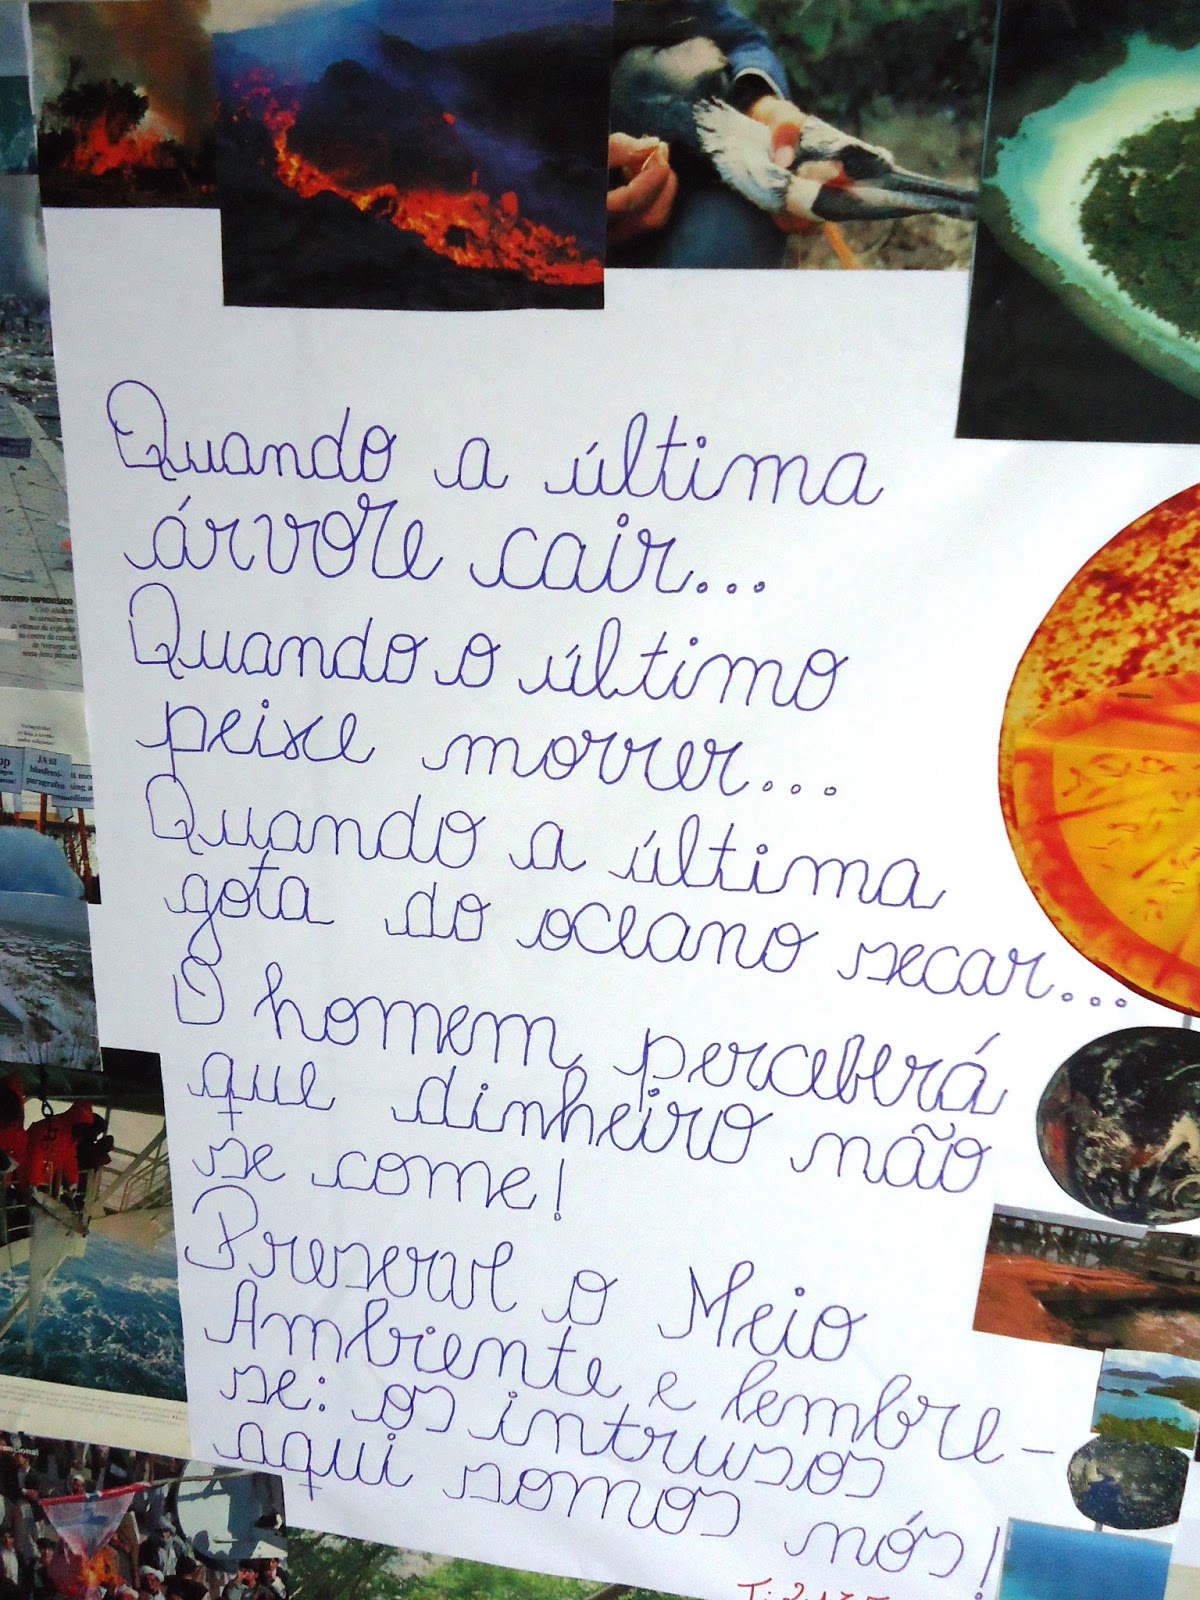 Quando a última
árvore cair...
Quando o último
peixe morrer...
Quando a última
gota do oceano secar...
O homem perceberá
que dinheiro não
se come!
Preserve o Meio
Ambiente e lembre-
se: os intrusos
aqui somos nós!
SOCORRO IMPROVISADO